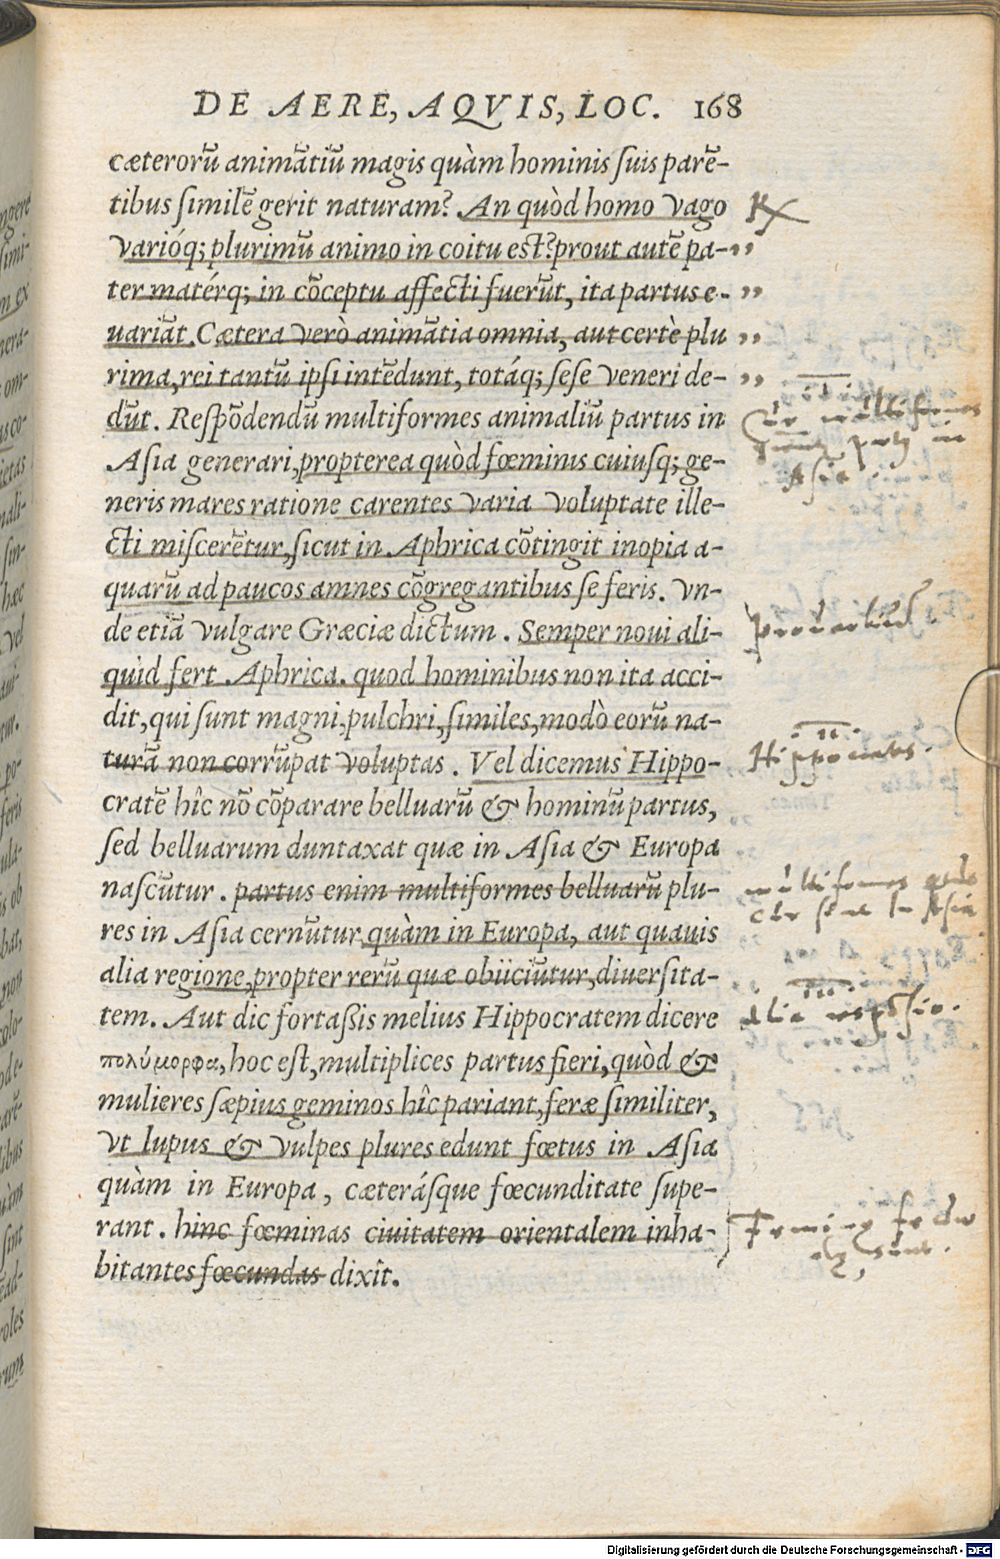 DE AERE, AQVIS, LOC. 168
cæterorū animātiū magis quàm hominis suis parē-
tibus similē gerit naturam? An quòd homo vago
varióq; plurimū animo in coitu est? prout autē pa-
ter matérq; in cōceptu affecti fuerūt, ita partus e-
uariāt. Cætera verò animātia omnia, aut certè plu
rima, rei tantū ipsi intēdunt, totáq; sese veneri de-
dūt. Respōdendū multiformes animaliū partus in
Asia generari, propterea quòd fœminis cuiusq; ge-
neris mares ratione carentes varia voluptate ille-
cti miscerētur, sicut in Aphrica cōtingit inopia a-
quarū ad paucos amnes cōgregantibus se feris. Vn-
de etiā vulgare Græciæ dictum. Semper noui ali-
quid fert Aphrica. quod hominibus non ita acci-
dit, qui sunt magni, pulchri, similes, modò eorū na-
turā non corrūpat voluptas. Vel dicemus Hippo-
cratē hîc nō cōparare belluarū & hominū partus,
sed belluarum duntaxat quæ in Asia & Europa
nascūtur. partus enim multiformes belluarū plu-
res in Asia cernūtur quàm in Europa, aut quauis
alia regione, propter rerū quæ obiiciūtur, diuersita-
tem. Aut dic fortaßis melius Hippocratem dicere
πολύμορφα, hoc est, multiplices partus fieri, quòd &
mulieres sæpius geminos hîc pariant, feræ similiter,
vt lupus & vulpes plures edunt fœtus in Asia
quàm in Europa, cæterásque fœcunditate supe-
rant. hinc fœminas ciuitatem orientalem inha-
bitantes fœcundas dixit.
cur multiformes
partus in
Asia
prouerbiū.
.II.
Hippocrates.
multiformes
cur sint in Asia
.III.
Alia respōsio.
sunt.
Digitalisierung gefördert durch die Deutsche Forschungsgemeinschaft - DFG